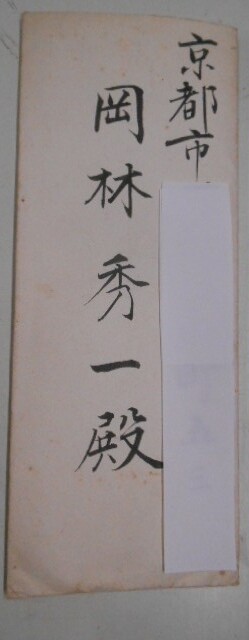 京都市
岡林秀一殿